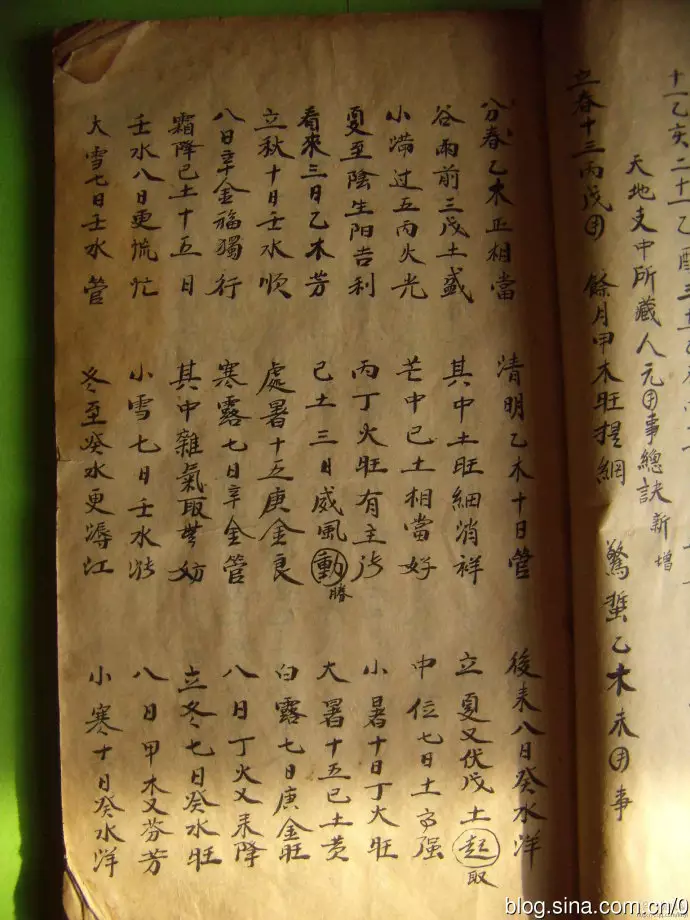 十一乙亥二十一乙酉三十乙
天地支中所藏人元用事總訣 新增
立春十三丙戊用 餘月甲木旺提綱 驚蟄乙木未用事
分春乙木正相當 清明乙木十日管 後来八日癸水洋
谷雨前三戊土盛 其中土旺細消祥 立夏又伏戊土起 取
小满过五丙火光 芒中己土相當好 中位七日土高强
夏至陰生阳吉利 丙丁火旺有主 小暑十日丁火旺
看來三日乙木芳 己土三日威風動 勝 大暑十五己土黄
立秋十日壬水順 處暑十五庚金良 白露七日庚金旺
八日辛金福獨行 寒露七日辛金管 八日丁火又来降
霜降己土十五日 其中雜氣取無妨 立冬七日癸水旺
壬水八日更慌忙 小雪七日壬水 八日甲木又芬芳
大雪七日壬水管 冬至癸水更江 小寒十日癸水洋
blog.sina.com.cn/0